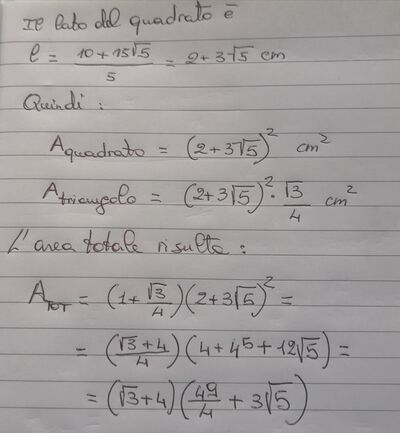 Il lato del quadrato è
l = (10 + 15√5)/5 = 2 + 3√5 cm
Quindi :
A quadrato = (2+3√5)² cm²
A triangolo = (2+3√5)² · √3/4 cm²
L'area totale risulta :
A TOT = (1 + √3/4)(2+3√5)² =
= ((√3+4)/4)(4+45+12√5) =
= (√3+4)(49/4 + 3√5)